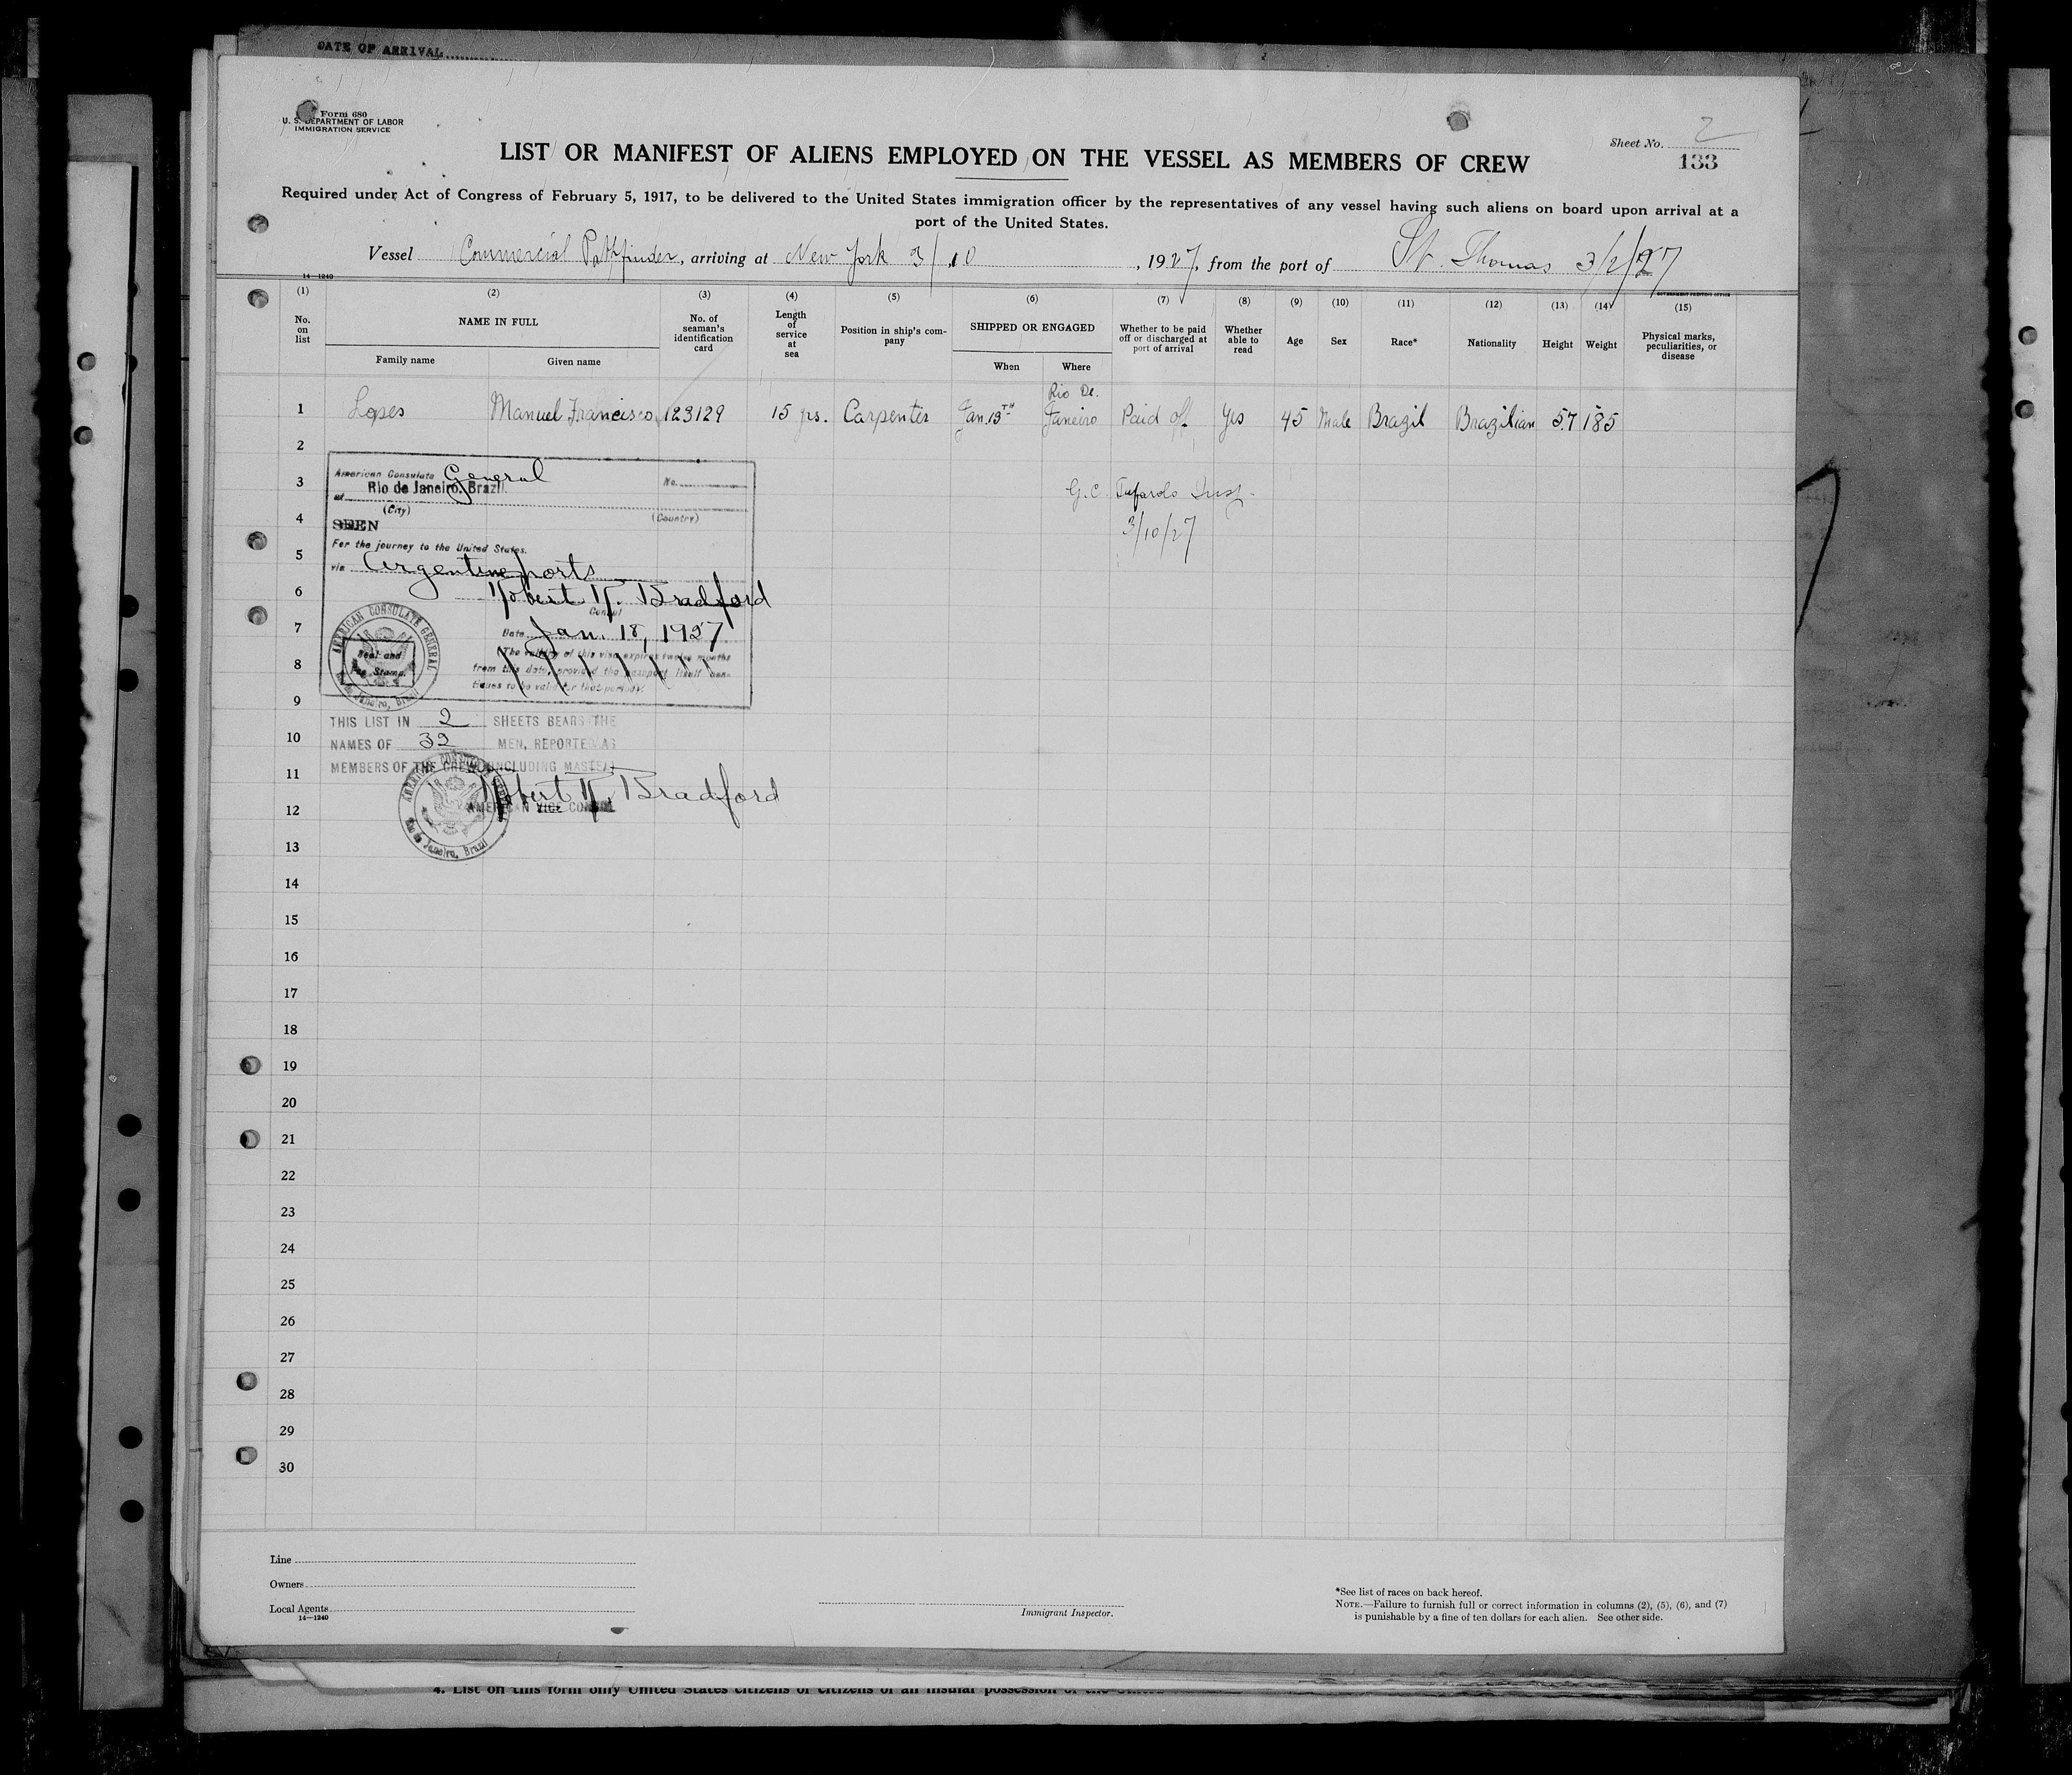 DATE OF ARRIVAL
Form 680
U. S. DEPARTMENT OF LABOR
IMMIGRATION SERVICE
Sheet No. 2
133
LIST OR MANIFEST OF ALIENS EMPLOYED ON THE VESSEL AS MEMBERS OF CREW
Required under Act of Congress of February 5, 1917, to be delivered to the United States immigration officer by the representatives of any vessel having such aliens on board upon arrival at a
port of the United States.
Vessel Commercial Pathfinder, arriving at New York 3/10, 1927, from the port of St. Thomas 3/2/27
14—1240
GOVERNMENT PRINTING OFFICE
(1) (2) (3) (4) (5) (6) (7) (8) (9) (10) (11) (12) (13) (14) (15)
No. on list NAME IN FULL Family name Given name No. of seaman's identification card Length of service at sea Position in ship's company SHIPPED OR ENGAGED When Where Whether to be paid off or discharged at port of arrival Whether able to read Age Sex Race* Nationality Height Weight Physical marks, peculiarities, or disease
1 Lopes Manuel Francisco 123129 15 yrs. Carpenter Jan. 13TH Rio De. Janeiro Paid off Yes 45 Male Brazil Brazilian 5.7 185
2
3
4
5
6
7
8
9
10
11
12
13
14
15
16
17
18
19
20
21
22
23
24
25
26
27
28
29
30
American Consulate General
at Rio de Janeiro, Brazil. No.
(City) (Country)
SEEN
For the journey to the United States.
via Argentine ports
Robert R. Bradford
Consul
Date Jan. 18, 1927
The validity of this visa expires twelve months
from this date, provided the passport itself con-
tinues to be valid for that period.
AMERICAN CONSULATE GENERAL
Seal and
Fee Stamp.
Rio de Janeiro, Brazil
G.C. Insp.
3/10/27
THIS LIST IN 2 SHEETS BEARS THE
NAMES OF 32 MEN, REPORTED AS
MEMBERS OF THE CREW INCLUDING MASTER
Robert R. Bradford
AMERICAN VICE CONSUL
Rio de Janeiro, Brazil
Line
Owners
Local Agents
14—1240
Immigrant Inspector.
*See list of races on back hereof.
NOTE.—Failure to furnish full or correct information in columns (2), (5), (6), and (7)
is punishable by a fine of ten dollars for each alien. See other side.
4. List on this form only United States citizens or citizens of an insular possession of the United